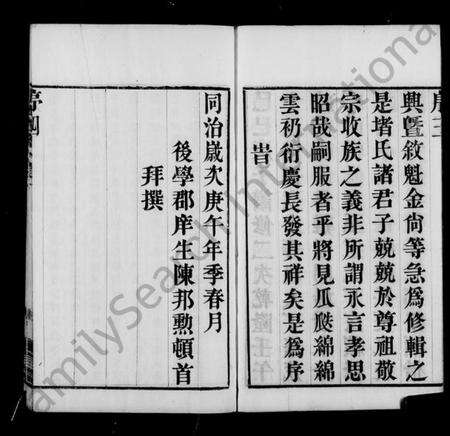 序三
興暨敘魁金尙等急爲修輯之
是堵氏諸君子兢兢於尊祖敬
宗收族之義非所謂永言孝思
昭哉嗣服者乎將見瓜瓞綿綿
雲礽衍慶長發其祥矣是爲序
旹
同治歲次庚午年季春月
後學郡庠生陳邦勲頓首
拜撰
FamilySearch International